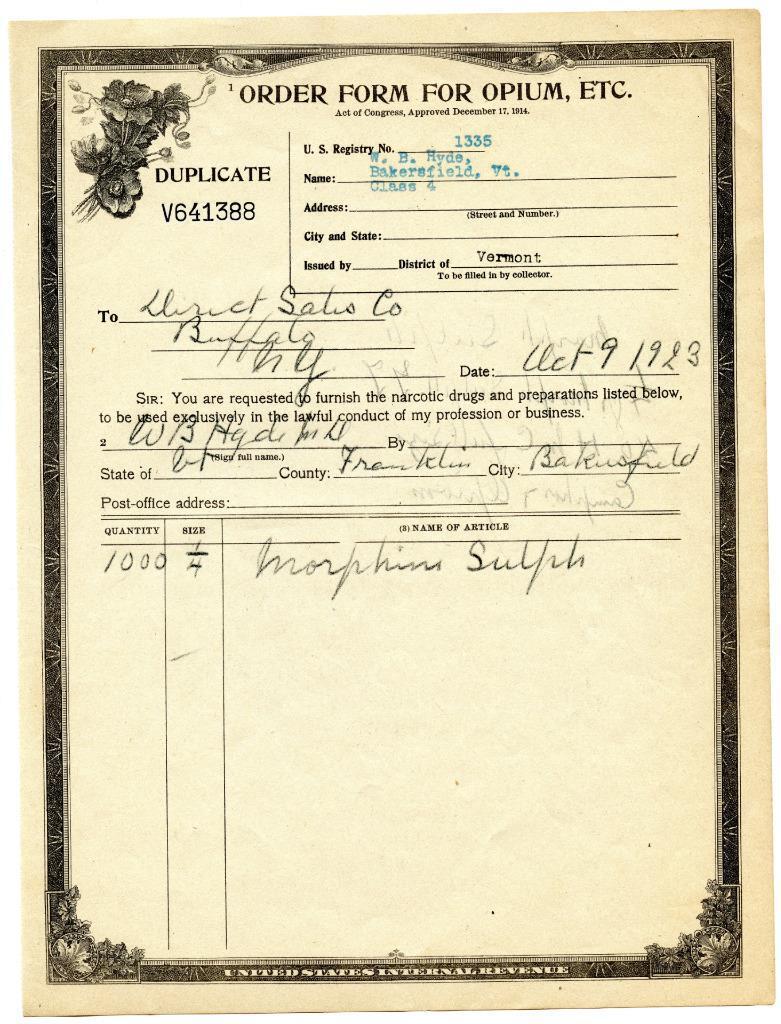 1 ORDER FORM FOR OPIUM, ETC.
Act of Congress, Approved December 17, 1914.
DUPLICATE
V641388
U. S. Registry No. 1335
Name: W. B. Hyde,
Bakersfield, Vt.
Class 4
Address:
(Street and Number.)
City and State:
Issued by District of Vermont
To be filled in by collector.
To Direct Sales Co
Buffalo
NY
Date: Oct 9 1923
SIR: You are requested to furnish the narcotic drugs and preparations listed below,
to be used exclusively in the lawful conduct of my profession or business.
2 WB Hyde MD By
(Sign full name.)
State of Vt County: Franklin City: Bakersfield
Post-office address:
QUANTITY SIZE (3) NAME OF ARTICLE
1000 1/4 Morphine Sulph
UNITED STATES INTERNAL REVENUE